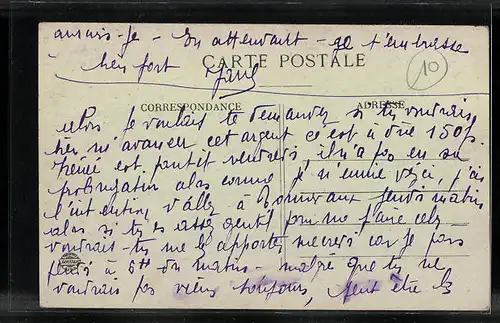 aurais-je - En attendant - je t'embrasse
bien fort
CARTE POSTALE
10
CORRESPONDANCE
ADRESSE
alors je voulais te demander si tu voudrais
bien m'avancer cet argent c'est à dire 150f.
René est parti vendredi, il n'a pas eu sa
prolongation alors comme je m'ennuie ici, j'ai
l'intention d'aller à jeudi matin
alors si tu es assez gentil pour me faire cela
voudrais-tu me l'apporter mercredi car je pars
jeudi à 5H du matin - malgré que tu ne
voudrais pas venir toujours, peut être